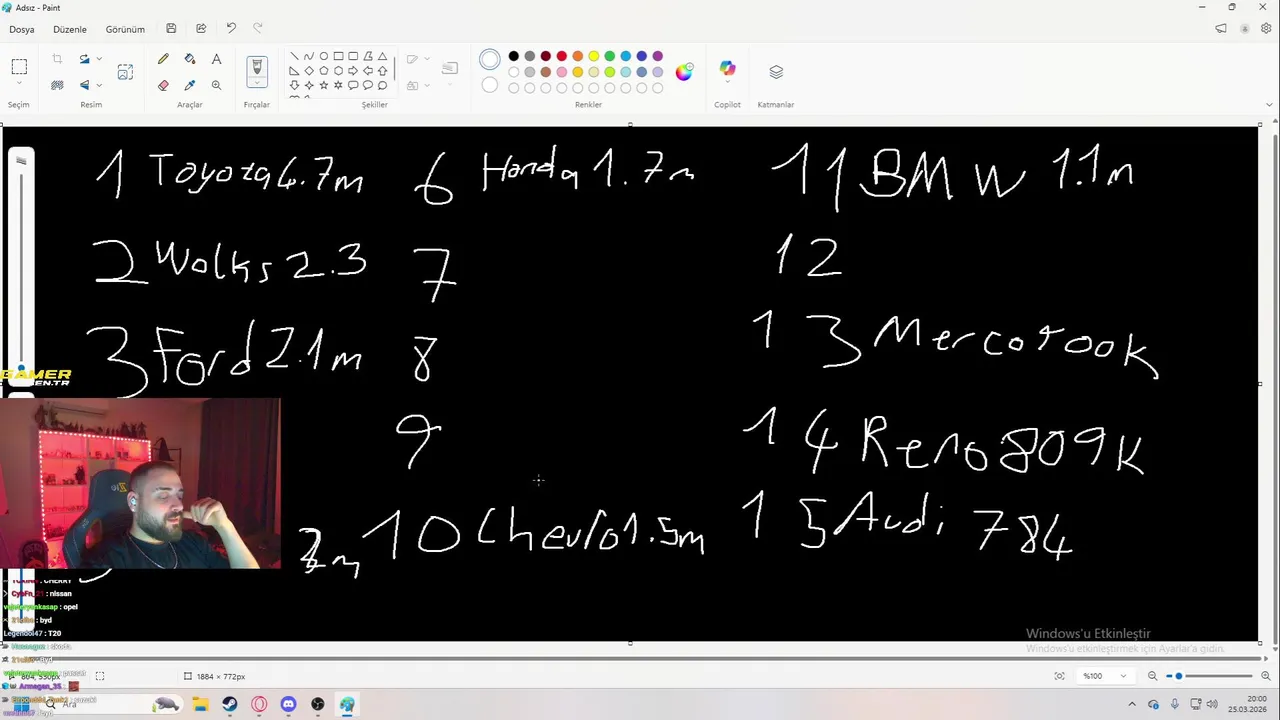 Adsız - Paint
Dosya Düzenle Görünüm
Seçim Resim Araçlar Fırçalar Şekiller Renkler Copilot Katmanlar
1 Toyota 4.7m 6 Honda 1.7m 11 BMW 1.1m
2 Wolks 2.3 7 12
3 Ford 2.1m 8 13 Merco
9 14 Reno 809K
10 Chevlo 1.5m 15 Audi 784
GAMER
EN.TR
CypFn_21 : nissan
opel
byd
Legendol47 : T20
skoda
Windows'u Etkinleştir
Windows'u etkinleştirmek için Ayarlar'a gidin.
1884 × 772px
%100
Ara
20:00
25.03.2026